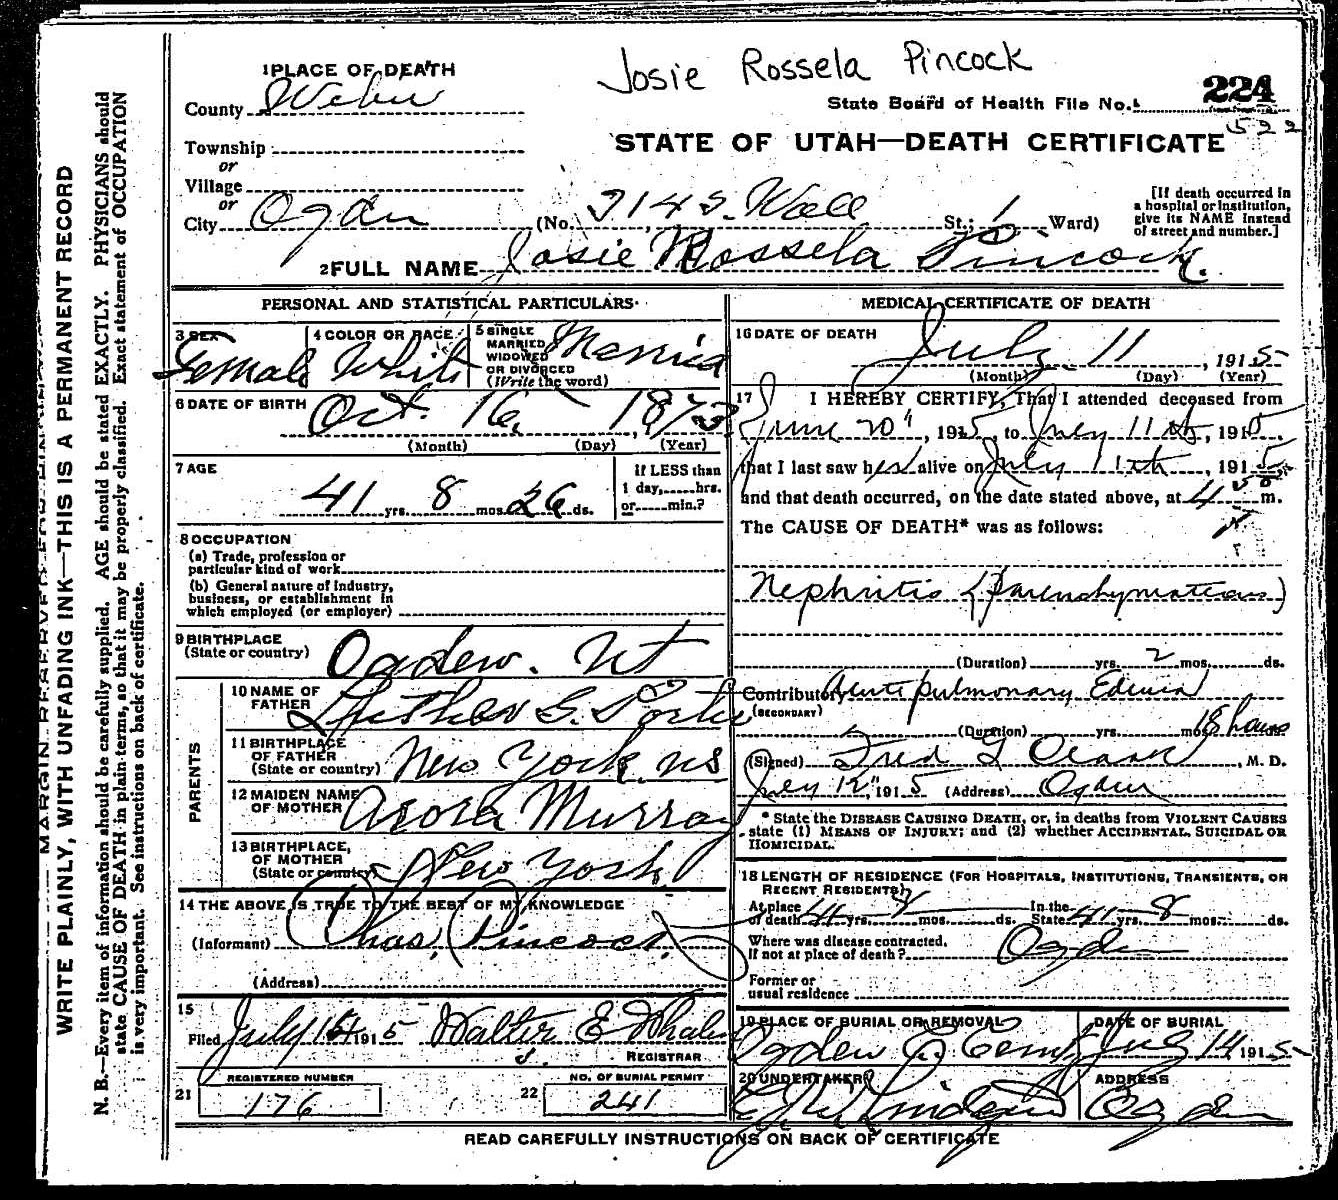 Josie Rossela Pincock
1 PLACE OF DEATH
County Weber
State Board of Health File No. 224
522
STATE OF UTAH—DEATH CERTIFICATE
Township
or
Village
or
City Ogden (No. 2145. Wall St.; 1 Ward)
[If death occurred in a hospital or institution, give its NAME instead of street and number.]
2 FULL NAME Josie Rossela Pincock.
PERSONAL AND STATISTICAL PARTICULARS
3 SEX Female
4 COLOR OR RACE White
5 SINGLE MARRIED WIDOWED OR DIVORCED (Write the word) Married
6 DATE OF BIRTH Oct. 16, 1873
(Month) (Day) (Year)
7 AGE 41 yrs. 8 mos. 26 ds.
If LESS than 1 day,......hrs. or......min.?
8 OCCUPATION
(a) Trade, profession or particular kind of work
(b) General nature of industry, business, or establishment in which employed (or employer)
9 BIRTHPLACE (State or country) Ogden. Ut
PARENTS
10 NAME OF FATHER Luther G. Porter
11 BIRTHPLACE OF FATHER (State or country) New York.
12 MAIDEN NAME OF MOTHER Murray
13 BIRTHPLACE, OF MOTHER (State or country) New York
14 THE ABOVE IS TRUE TO THE BEST OF MY KNOWLEDGE
(Informant) Chas, Pincock.
(Address)
15
Filed July 1915 Walter E Whalen
REGISTRAR
REGISTERED NUMBER
21 176
NO. OF BURIAL PERMIT
22 241
MEDICAL CERTIFICATE OF DEATH
16 DATE OF DEATH
July 11, 1915
(Month) (Day) (Year)
17 I HEREBY CERTIFY, That I attended deceased from
June 20", 1915, to July 11th, 1915.
that I last saw her alive on July 11th, 1915
and that death occurred, on the date stated above, at 4 50 m.
The CAUSE OF DEATH* was as follows:
Nephritis (Parenchymatous)
(Duration) yrs. 2 mos. ds.
Contributory Acute pulmonary Edema
(SECONDARY)
(Duration) yrs. mos. 18 hours
(Signed) Fred , M. D.
July 12", 1915 (Address) Ogden
* State the DISEASE CAUSING DEATH, or, in deaths from VIOLENT CAUSES state (1) MEANS OF INJURY; and (2) whether ACCIDENTAL, SUICIDAL OR HOMICIDAL.
18 LENGTH OF RESIDENCE (FOR HOSPITALS, INSTITUTIONS, TRANSIENTS, OR RECENT RESIDENTS)
At place of death 41 yrs. 8 mos. ds. In the State 41 yrs. 8 mos. ds.
Where was disease contracted, If not at place of death? Ogden
Former or usual residence
19 PLACE OF BURIAL OR REMOVAL Ogden C. Cem.
DATE OF BURIAL July 14, 1915
20 UNDERTAKER Lindquist
ADDRESS Ogden
READ CAREFULLY INSTRUCTIONS ON BACK OF CERTIFICATE
MARGIN RESERVED FOR BINDING
WRITE PLAINLY, WITH UNFADING INK—THIS IS A PERMANENT RECORD
N. B.—Every item of information should be carefully supplied. AGE should be stated EXACTLY. PHYSICIANS should
state CAUSE OF DEATH in plain terms, so that it may be properly classified. Exact statement of OCCUPATION
is very important. See instructions on back of certificate.